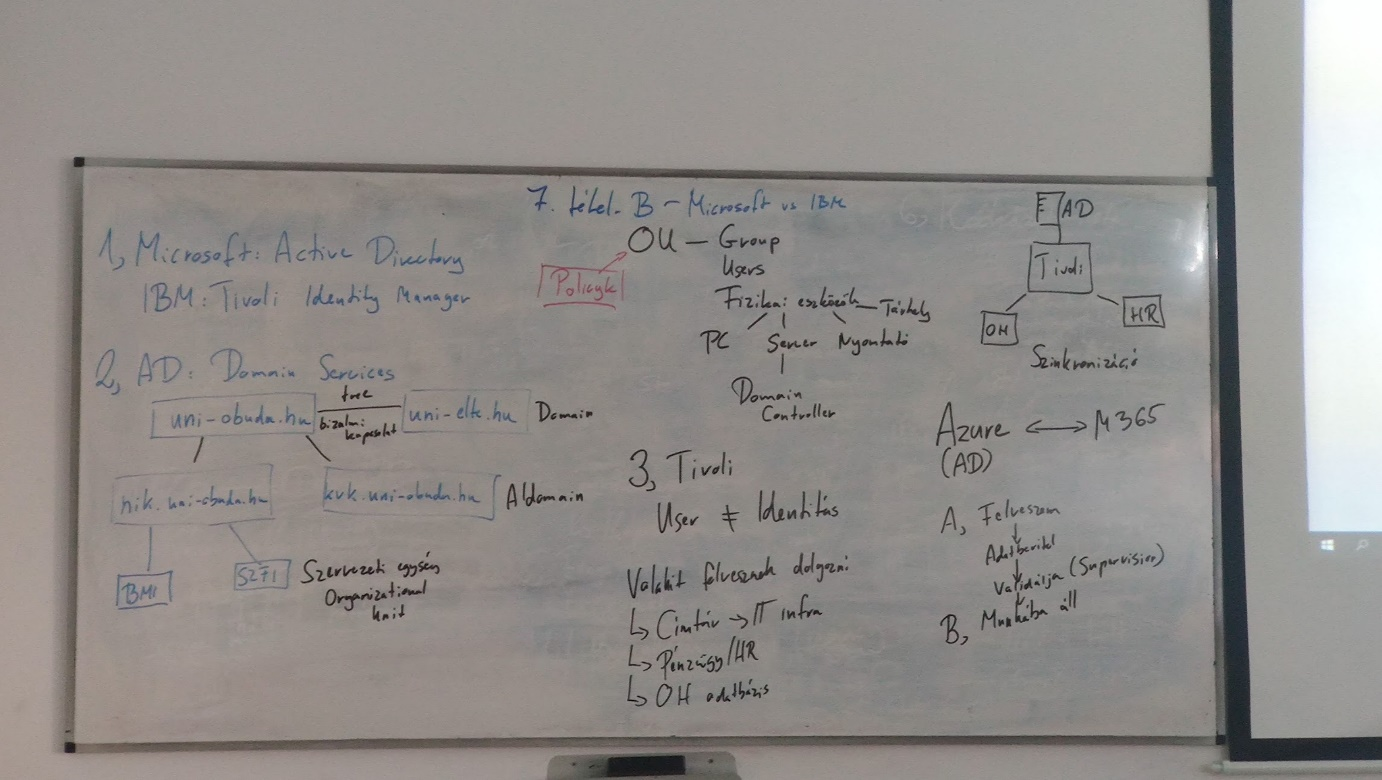 7. tétel. B - Microsoft vs IBM
1, Microsoft: Active Directory
IBM: Tivoli Identity Manager
2, AD: Domain Services
uni-obuda.hu
tree
bizalmi
kapcsolat
uni-elte.hu
Domain
nik.uni-obuda.hu
kvk.uni-obuda.hu
Aldomain
BMI
SZFI
Szervezeti egység
Organizational
Unit
Policyk
OU - Group
Users
Fizikai eszközök - Tárhely
PC
Server
Nyomtató
Domain
Controller
3, Tivoli
User ≠ Identitás
Valakit felvesznek dolgozni
↳ Címtár → IT infra
↳ Pénzügy/HR
↳ OH adatbázis
AD
Tivoli
OH
HR
Szinkronizáció
Azure ↔ M365
(AD)
A, Felveszem
Adatbevitel
Validálja (Supervisior)
B, Munkába áll